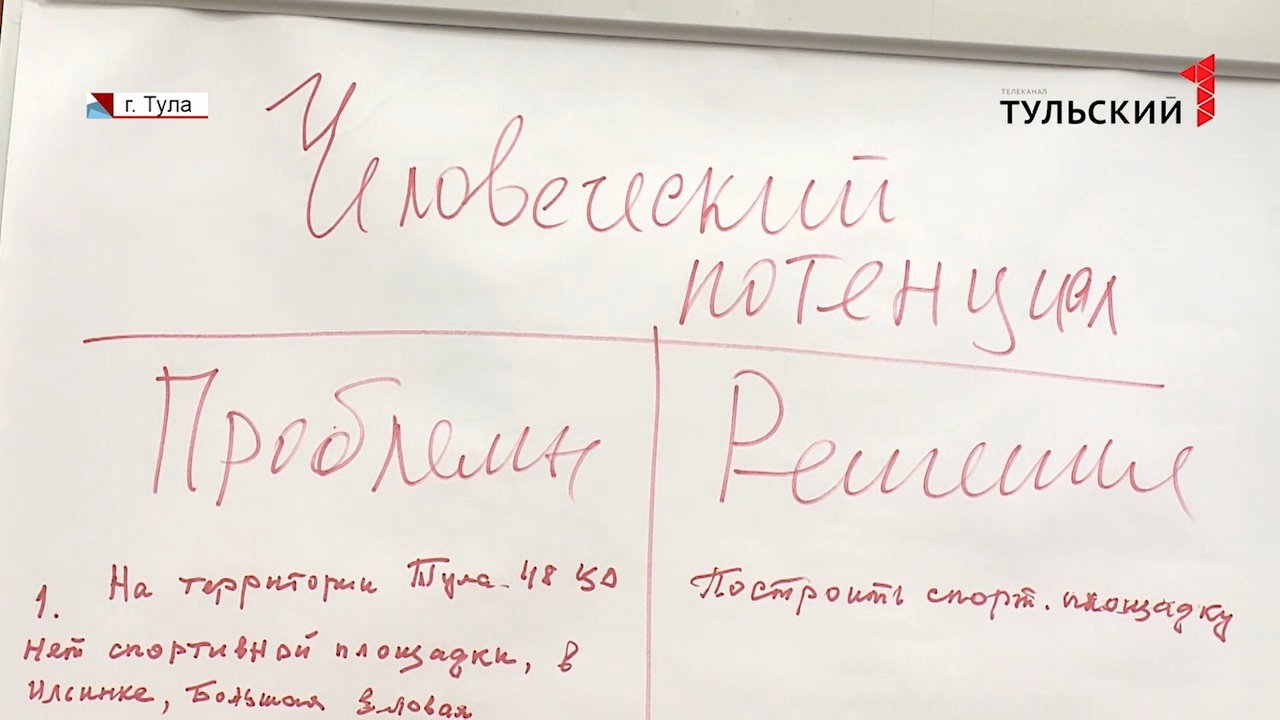 г. Тула
ТЕЛЕКАНАЛ
ТУЛЬСКИЙ 1
Человеческий
потенциал
Проблемы
Решения
1. На территории Тула-48 ЦО
нет спортивной площадки, в
Илсинке, Большая Еловая
Построить спорт. площадку